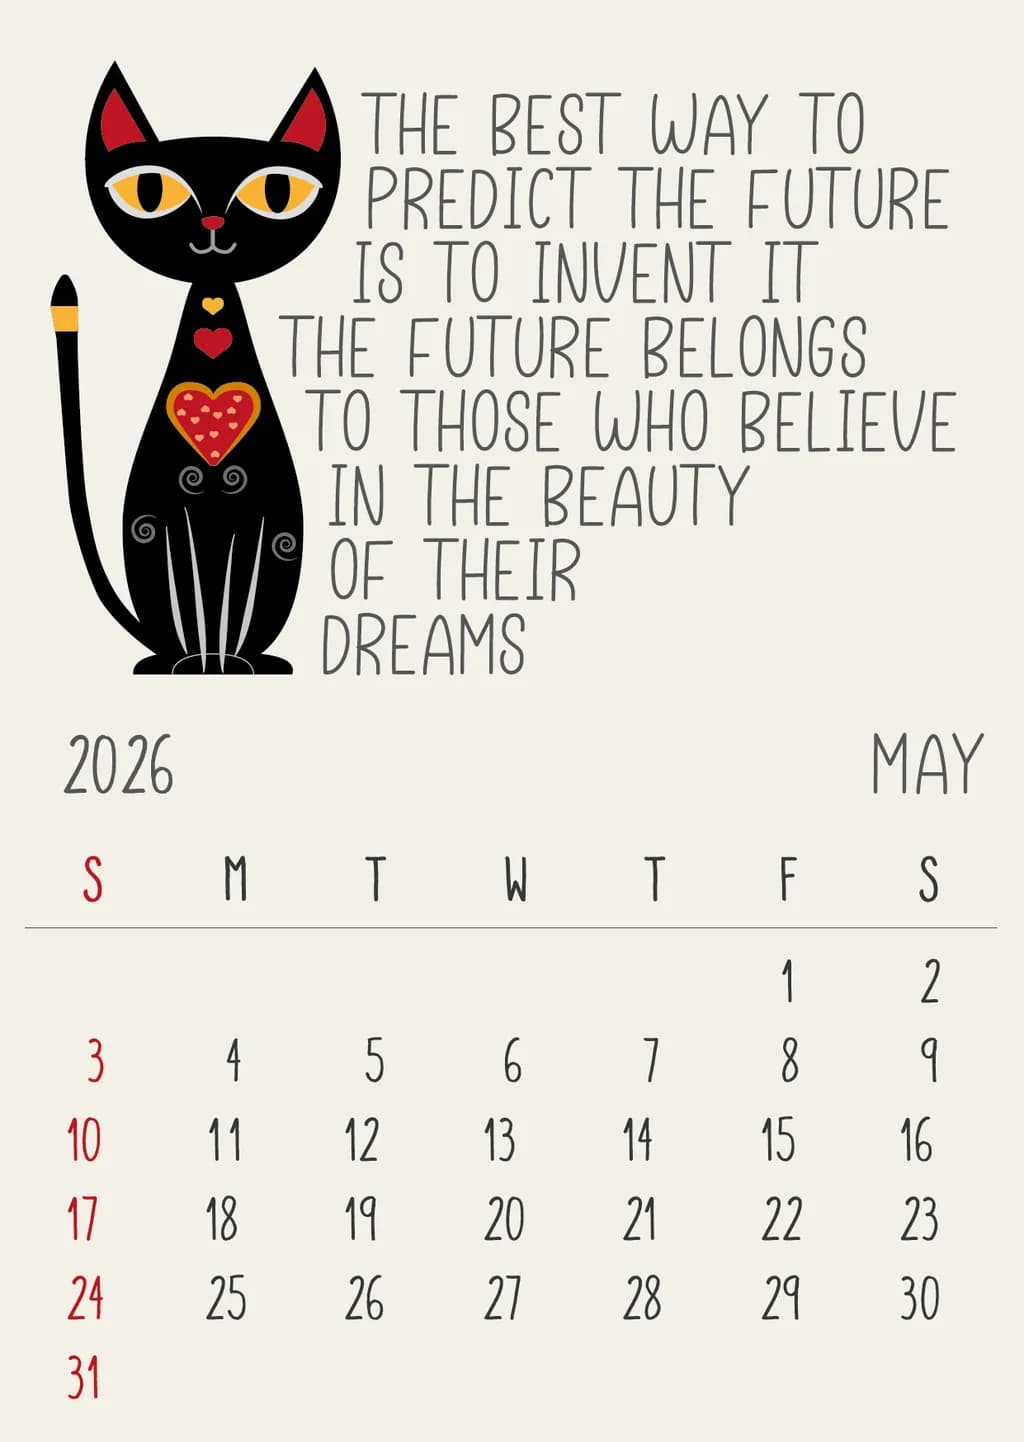 THE BEST WAY TO
PREDICT THE FUTURE
IS TO INVENT IT
THE FUTURE BELONGS
TO THOSE WHO BELIEVE
IN THE BEAUTY
OF THEIR
DREAMS
2026 MAY
S M T W T F S
1 2
3 4 5 6 7 8 9
10 11 12 13 14 15 16
17 18 19 20 21 22 23
24 25 26 27 28 29 30
31